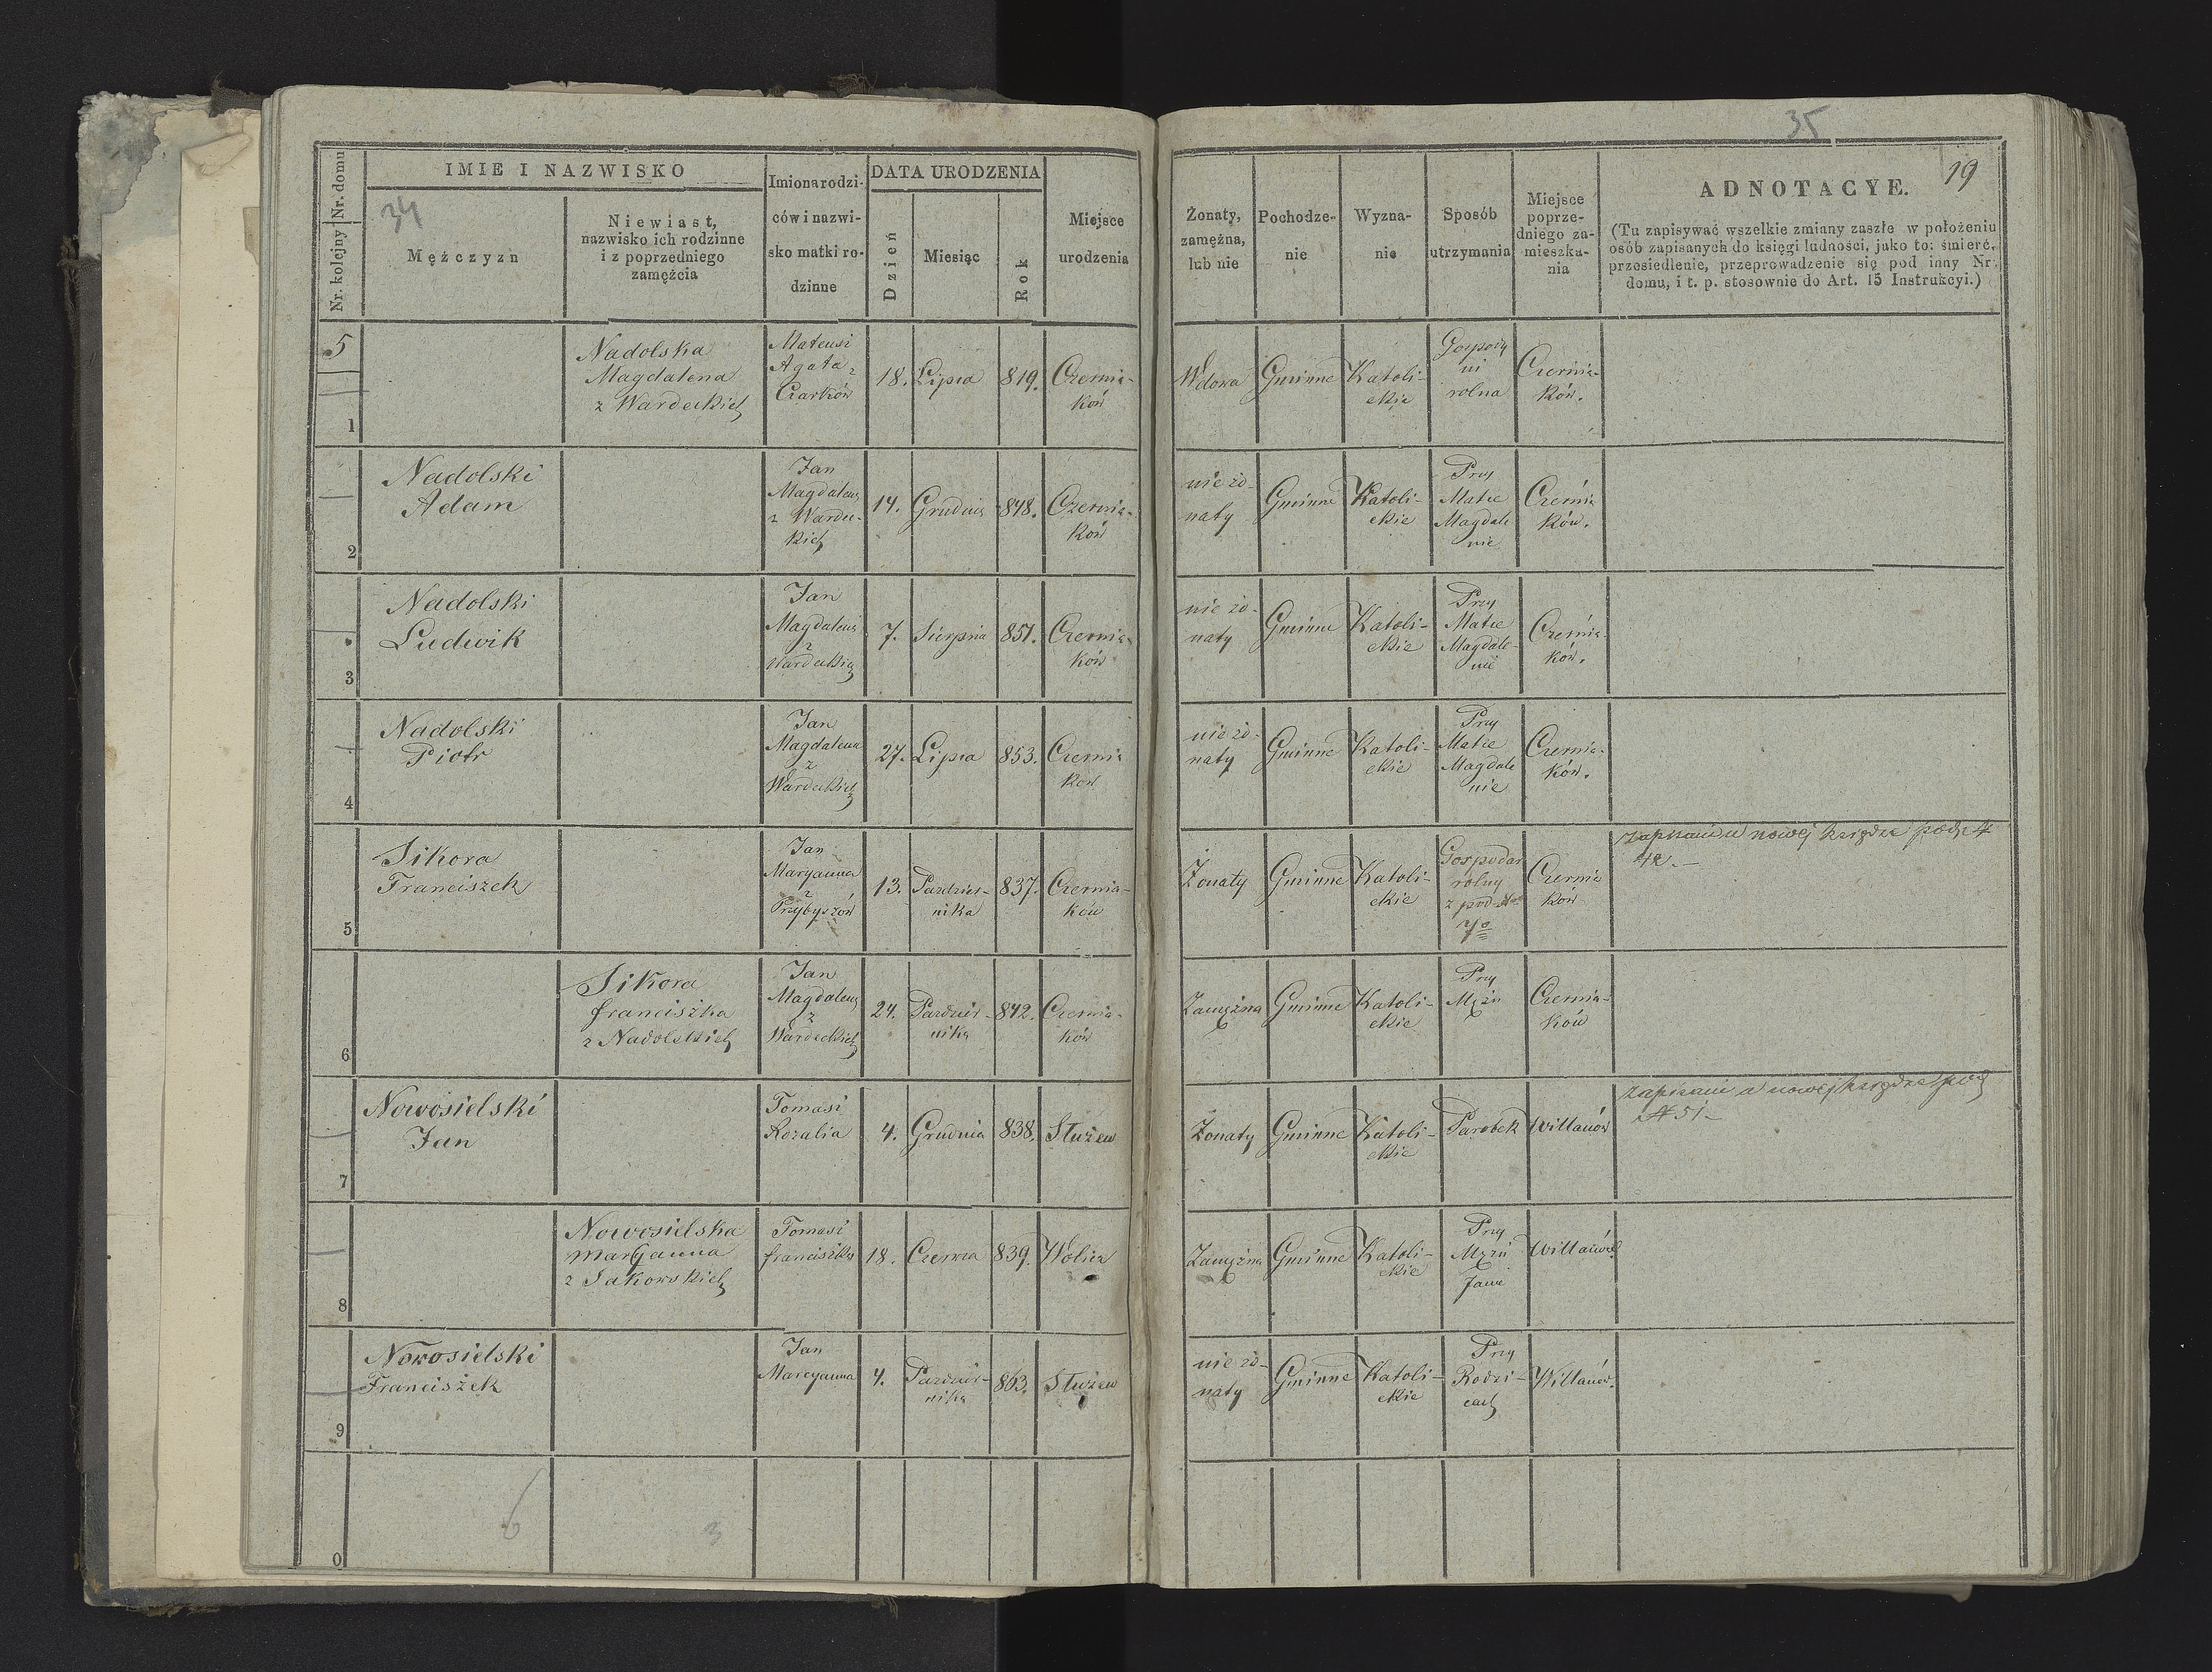 35
19
Nr. kolejny Nr. domu
IMIE I NAZWISKO
34
Mężczyzn
Niewiast,
nazwisko ich rodzinne
i z poprzedniego
zamężcia
Imiona rodzi-
ców i nazwi-
sko matki ro-
dzinne
DATA URODZENIA
Dzień
Miesiąc
Rok
Miejsce
urodzenia
Żonaty,
zamężna,
lub nie
Pochodze-
nie
Wyzna-
nie
Sposób
utrzymania
Miejsce
poprze-
dniego za-
mieszka-
nia
ADNOTACYE.
(Tu zapisywać wszelkie zmiany zaszłe w położeniu
osób zapisanych do księgi ludności, jako to: śmierć,
przesiedlenie, przeprowadzenie się pod inny Nr.
domu, i t. p. stosownie do Art. 15 Instrukcyi.)
5
1
Nadolska
Magdalena
z Wardeckich
Mateusz
Agata z
Czarków
18.
Lipca
819.
Czernia-
ków
Wdowa
Gminne
Katoli-
ckie
Gospody
ni
rolna
Czernia-
ków.
2
Nadolski
Adam
Jan
Magdalena
z Wardec-
kich
14.
Grudnia
848.
Czernia-
ków
nie żo-
naty
Gminne
Katoli-
ckie
Przy
Matce
Magdale
nie
Czernia
ków.
3
Nadolski
Ludwik
Jan
Magdalena
z
Wardeckich
7.
Sierpnia
851.
Czernia-
ków
nie żo-
naty
Gminne
Katoli-
ckie
Przy
Matce
Magdale-
nie
Czernia-
ków.
4
Nadolski
Piotr
Jan
Magdalena
z
Wardeckich
27.
Lipca
853.
Czernia
ków
nie żo-
naty
Gminne
Katoli-
ckie
Przy
Matce
Magdale
nie
Czernia-
ków.
5
Sikora
Franciszek
Jan
Maryanna
z
Przybyszów
13.
Paździer-
nika
837.
Czernia-
ków
Żonaty
Gminne
Katoli-
ckie
Gospodar
rolny
z pod No
Czernia
ków
zapisani w nowej księdze pod №
42.-
6
Sikora
franciszka
z Nadolskich
Jan
Magdalena
z
Wardeckich
24.
Paździer-
nika
842.
Czernia-
ków
Zamężna
Gminne
Katoli-
ckie
Przy
Mężu
Czernia-
ków
7
Nowosielski
Jan
Tomasz
Rozalia
4.
Grudnia
838.
Służew
Żonaty
Gminne
Katoli-
ckie
Parobek
Willanów
zapisani w nowej księdze pod
№ 51-
8
Nowosielska
Maryanna
z Sakowskich
Tomasz
franciszka
18.
Czerwca
839.
Wolica
Zamężna
Gminne
Katoli-
ckie
Przy
Mężu
Janie
Willanów
9
Nowosielski
Franciszek
Jan
Marcyanna
4.
Paździer-
nika
863.
Służew
nie żo-
naty
Gminne
Katoli-
ckie
Przy
Rodzi-
cach
Willanów.
0
6
3